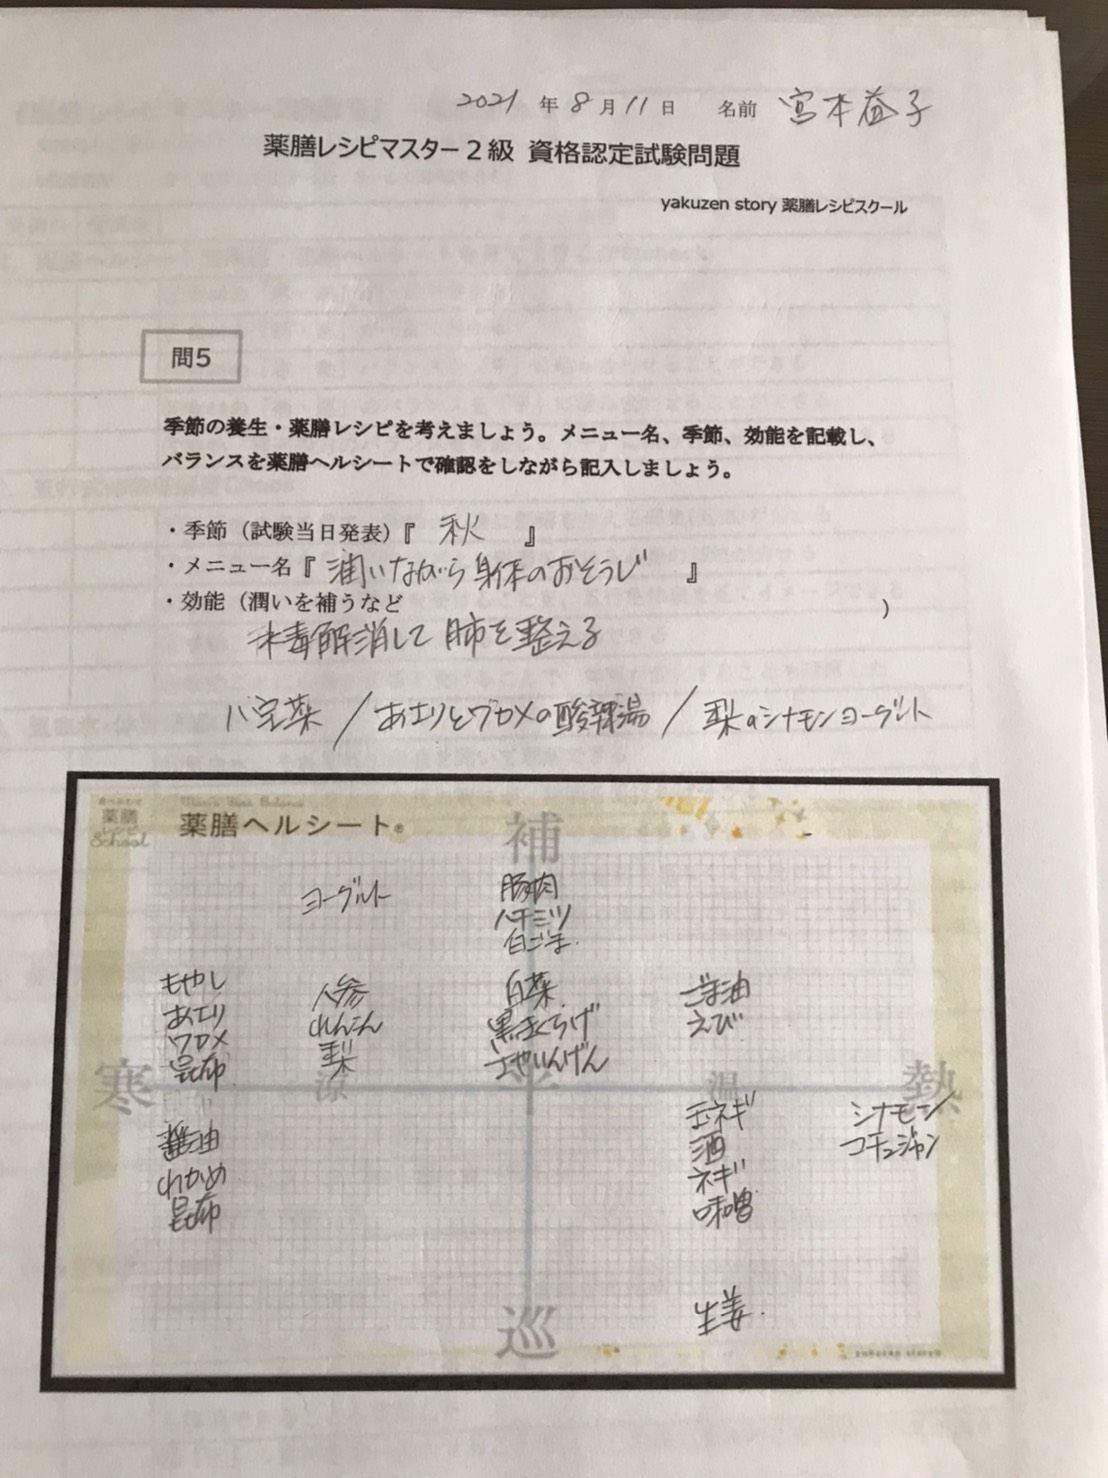 2021年8月11日 名前 宮本益子
薬膳レシピマスター2級 資格認定試験問題
yakuzen story 薬膳レシピスクール
問5
季節の養生・薬膳レシピを考えましょう。メニュー名、季節、効能を記載し、
バランスを薬膳ヘルシートで確認をしながら記入しましょう。
・季節(試験当日発表)『 秋 』
・メニュー名『 潤いながら身体のおそうじ 』
・効能(潤いを補うなど )
水毒解消して肺を整える
八宝菜 / あさりとワカメの酸辣湯 / 梨のシナモンヨーグルト
薬膳
School
薬膳ヘルシート®
補
ヨーグルト
豚肉
ハチミツ
白ごま
もやし
あさり
ワカメ
昆布
人参
れんこん
梨
白菜
黒きくらげ
さやいんげん
ごま油
えび
寒 涼 平 温 熱
醤油
わかめ
昆布
玉ネギ
酒
ネギ
味噌
シナモン
コチュジャン
生姜
巡
yakuzen story